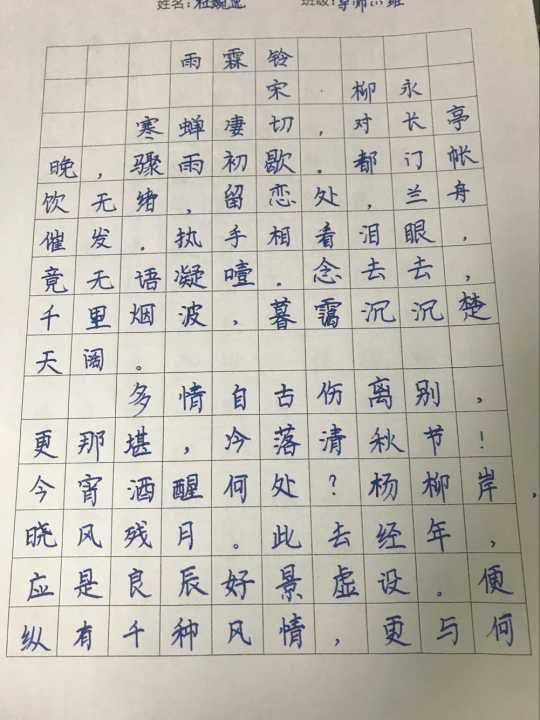 姓名:
班级:
雨霖铃
宋·柳永
寒蝉凄切,对长亭
晚,骤雨初歇.都订帐
饮无绪,留恋处,兰舟
催发.执手相看泪眼,
竟无语凝噎.念去去,
千里烟波,暮霭沉沉楚
天阔。
多情自古伤离别,
更那堪,冷落清秋节!
今宵酒醒何处?杨柳岸,
晓风残月。此去经年,
应是良辰好景虚设。便
纵有千种风情,更与何